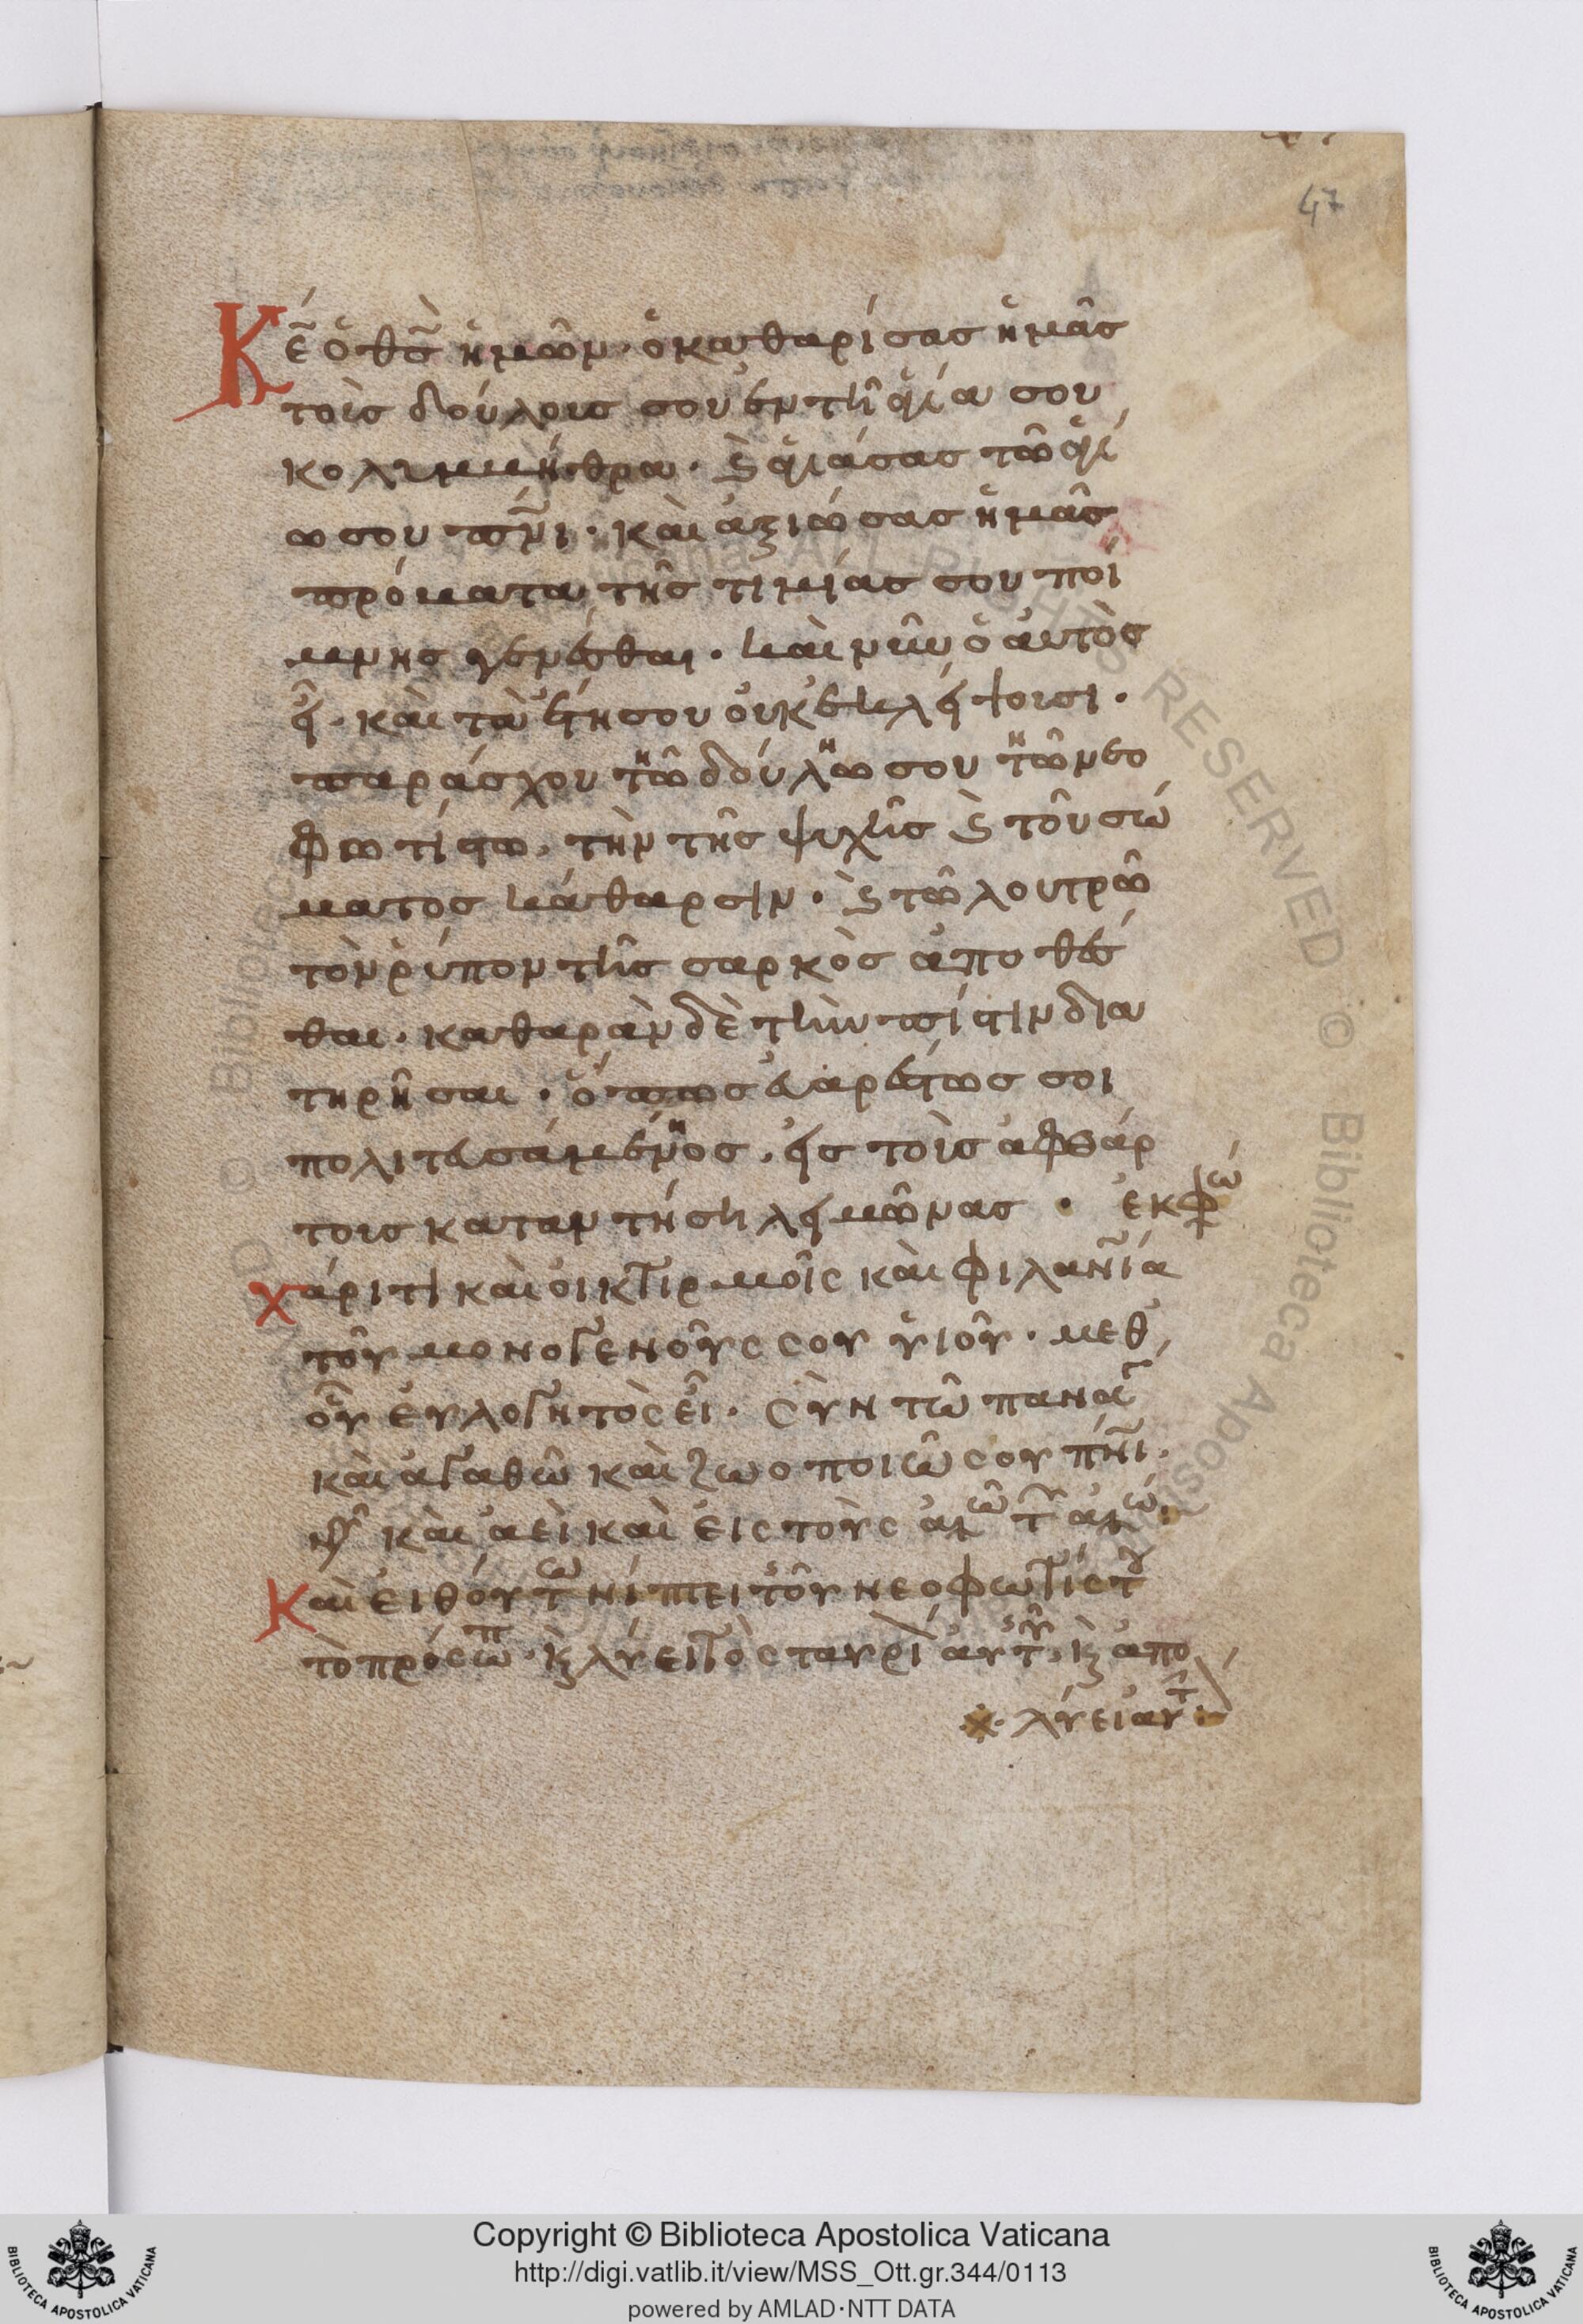 47
Κε̃ ὁ θς̃ ἡμῶν· ὁ καθαρίσας ἡμᾶς
τοὺς δούλους σου ἐν τῆ ἁγία σου
κολυμμήθρα· καὶ ἁγιάσας τῶ ἁγί
ω σου πνι̃· καὶ ἀξιώσας ἡμᾶς
πρόματα τῆς τιμίας σου ποί
μνης γενέσθαι· καὶ νῦν ὁ αὐτὸς
εἶ· καὶ τὰ ἔτη σου οὐκ ἐκλείψουσι·
παράσχου τῶ δούλω σου τῶ νεο
φωτίστω, τὴν τῆς ψυχῆς καὶ τοῦ σώ
ματος κάθαρσιν· καὶ τῶ λουτρῶ
τὸν ῥύπον τῆς σαρκὸς ἀποθέσ
θαι· καθαρὰν δὲ τὴν πίστιν δια
τηρῆσαι· ὅπως εὐαρέστως σοι
πολιτευσάμενος, εἰς τοὺς ἀφθάρ
τους καταντήση λειμῶνας · ἐκφώ
χάριτι καὶ οἰκτιρμοῖς καὶ φιλανι̃ᾳ
τοῦ μονογενοῦς σου υἱοῦ· μεθ'
οὗ εὐλογητὸς εἶ· σὺν τῶ παναγ
καὶ ἀγαθῶ καὶ ζωοποιῶ σου πνι̃·
νῦ καὶ ἀεὶ καὶ εἰς τοὺς αἰῶ τ αἰώ·
Καὶ εἰθούτω νίπτει τοῦ νεοφωτίστου
τὸ πρόσωπ· καὶ λύει τὸ σταυρί αὐτοῦ, καὶ ἀπο
λύει αὐτ
Copyright © Biblioteca Apostolica Vaticana
http://digi.vatlib.it/view/MSS_Ott.gr.344/0113
powered by AMLAD·NTT DATA
BIBLIOTECA APOSTOLICA VATICANA
BIBLIOTECA APOSTOLICA VATICANA